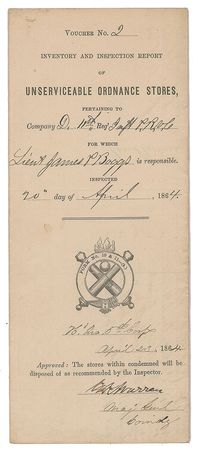 Voucher No. 2
Inventory and Inspection Report
OF
UNSERVICEABLE ORDNANCE STORES,
PERTAINING TO
Company D. 11th Reg Inft P.R.V.C
FOR WHICH
Lieut James P Boggs is responsible.
INSPECTED
20" day of April, 1864.
FORM No. 10
Hd Qrs 5th Corps
April 1864
Approved: The stores within condemned will be
disposed of as recommended by the Inspector.
G K Warren
Maj Genl
Comdg